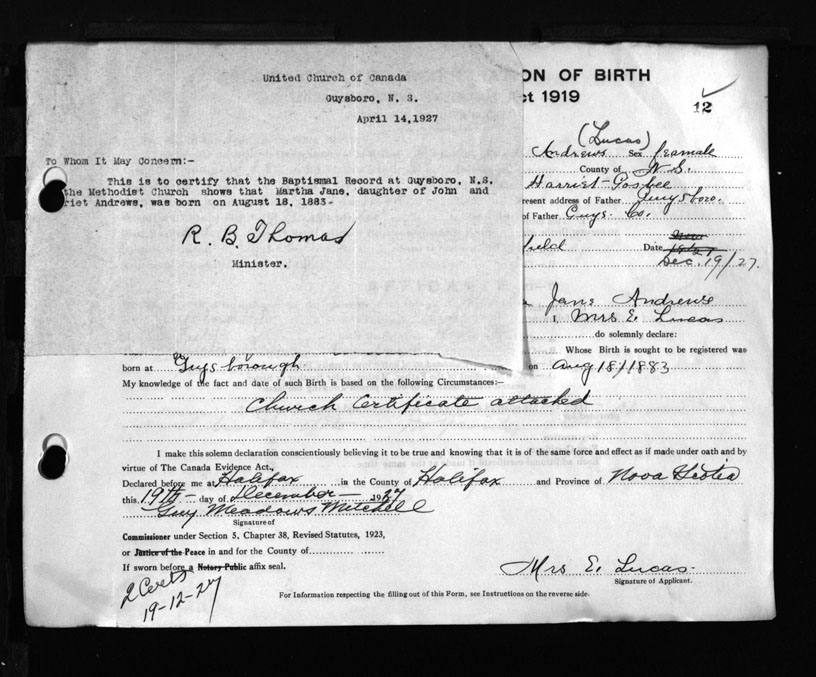 United Church of Canada
Guysboro, N. S.
April 14, 1927
To Whom It May Concern:-
This is to certify that the Baptismal Record at Guysboro, N.S.
the Methodist Church shows that Martha Jane, daughter of John and
riet Andrews, was born on August 18, 1883.
R. B. Thomas
Minister.
ON OF BIRTH
ct 1919
12
(Lucas)
Andrews Sex female
County of N.S.
Harriet
resent address of Father Guysboro.
of Father Guys. Co.
Date
Dec. 19/27.
Jane Andrews
I, Mrs E. Lucas
do solemnly declare:
Whose Birth is sought to be registered was
born at Guysborough on Aug 18/1883
My knowledge of the fact and date of such Birth is based on the following Circumstances:-
Church Certificate attached
I make this solemn declaration conscientiously believing it to be true and knowing that it is of the same force and effect as if made under oath and by
virtue of The Canada Evidence Act,
Declared before me at Halifax in the County of Halifax and Province of Nova Scotia
this 19th day of December 1927
Guy Meadows Mitchell
Signature of
Commissioner under Section 5, Chapter 38, Revised Statutes, 1923,
or Justice of the Peace in and for the County of
If sworn before a Notary Public affix seal.
Mrs E. Lucas.
Signature of Applicant.
2 Certs
19-12-27
For Information respecting the filling out of this Form, see Instructions on the reverse side.